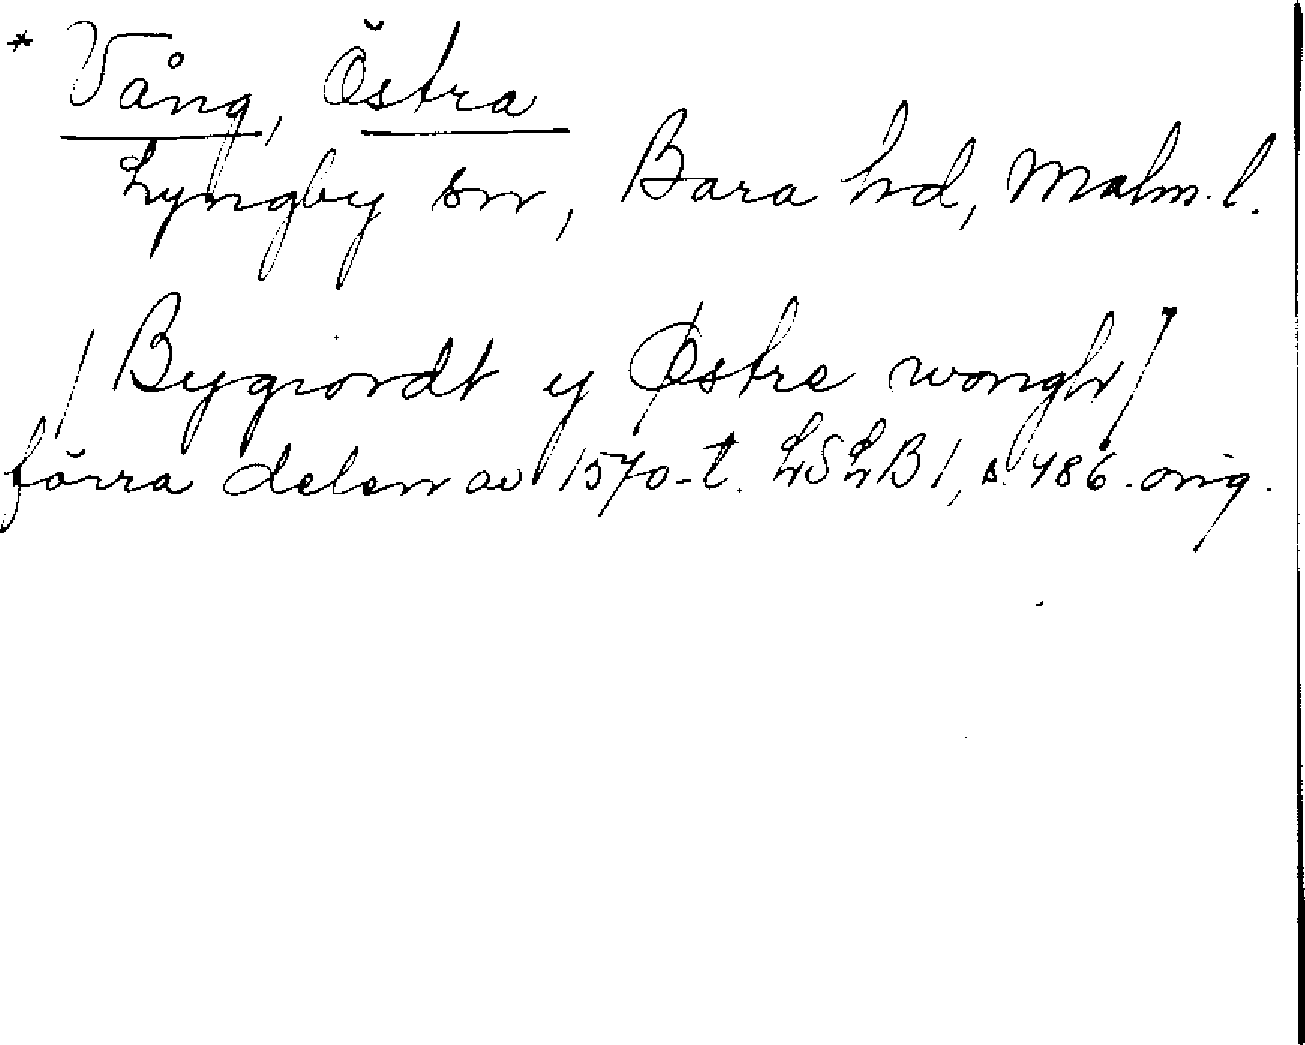 * Vång, Östra
Lyngby sn, Bara hd, Malm. l.
/ Bygiordt y Østre wongh /
förra delen av 1570-t. LSLB 1, s. 486. orig.